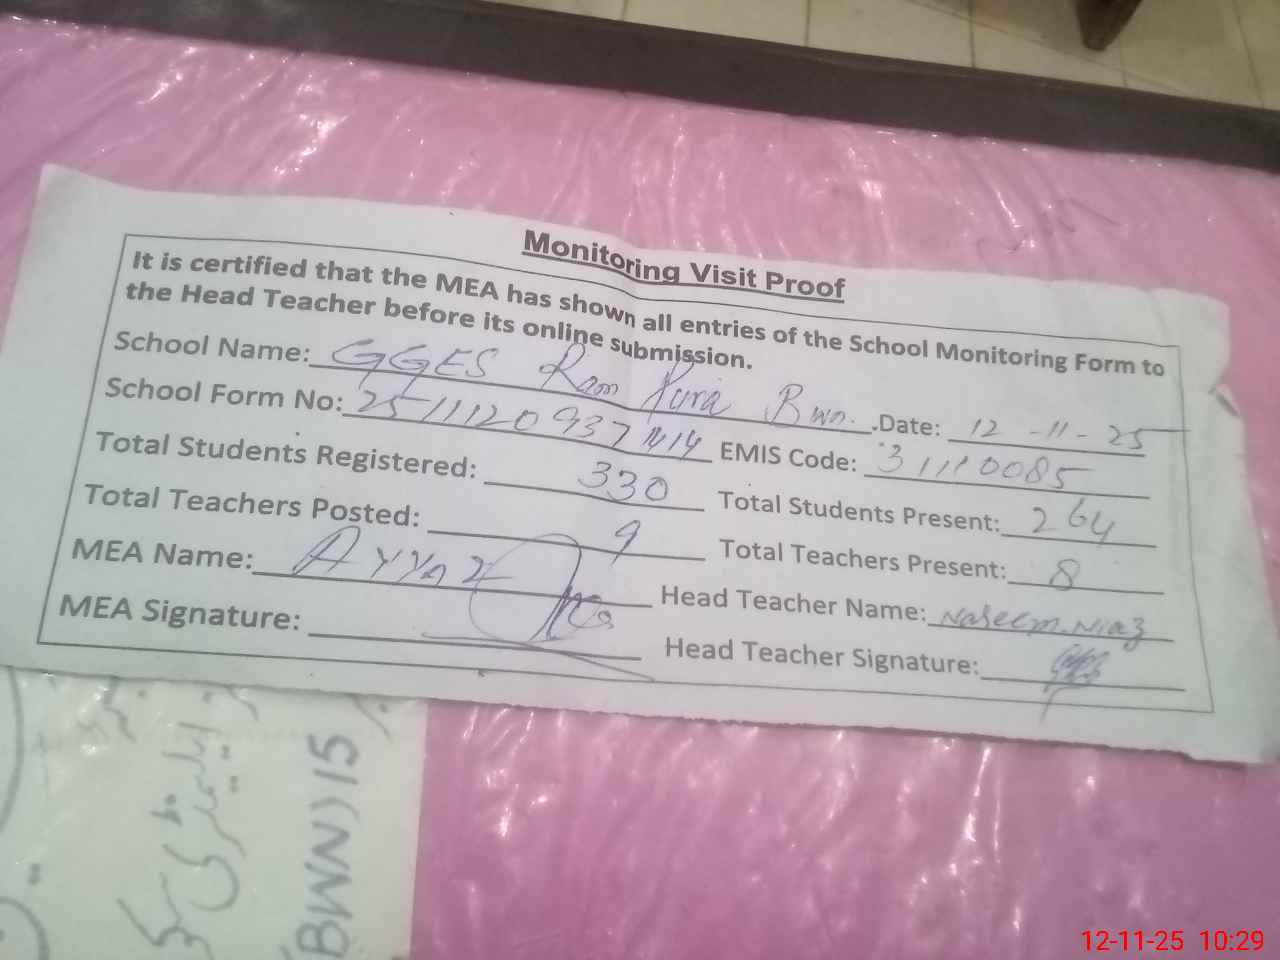 Monitoring Visit Proof
It is certified that the MEA has shown all entries of the School Monitoring Form to
the Head Teacher before its online submission.
School Name: GGES Ram Pura Bwn. .Date: 12-11-25
School Form No: EMIS Code: 31110085
Total Students Registered: 330 Total Students Present: 264
Total Teachers Posted: 9 Total Teachers Present: 8
MEA Name: Ayyaz Head Teacher Name: Naseem Niaz
MEA Signature: Head Teacher Signature:
BWN) 15
12-11-25 10:29